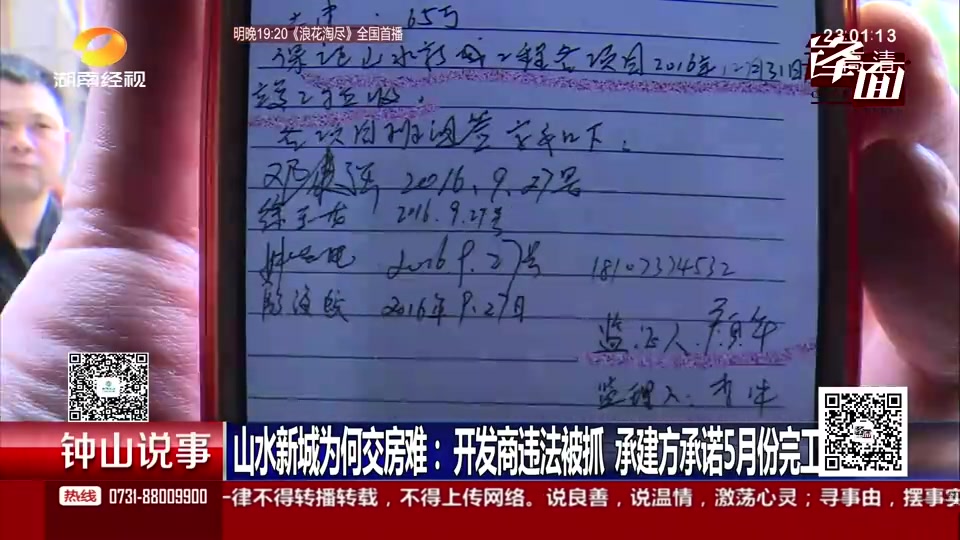 明晚19:20《浪花淘尽》全国首播
23:01:13
湖南经视
锋面
高清
65号
保证山水新城工程各项目2016年12月31日
竣工验收。
各项目班组签字如下:
邓 强 2016.9.27号
2016.9.27号
2016 9.27号 18107374532
2016年9.27日
监证人:
监理人:
钟山说事
山水新城为何交房难:开发商违法被抓 承建方承诺5月份完工
热线 0731-88009900 一律不得转播转载，不得上传网络。说良善，说温情，激荡心灵；寻事由，摆事实